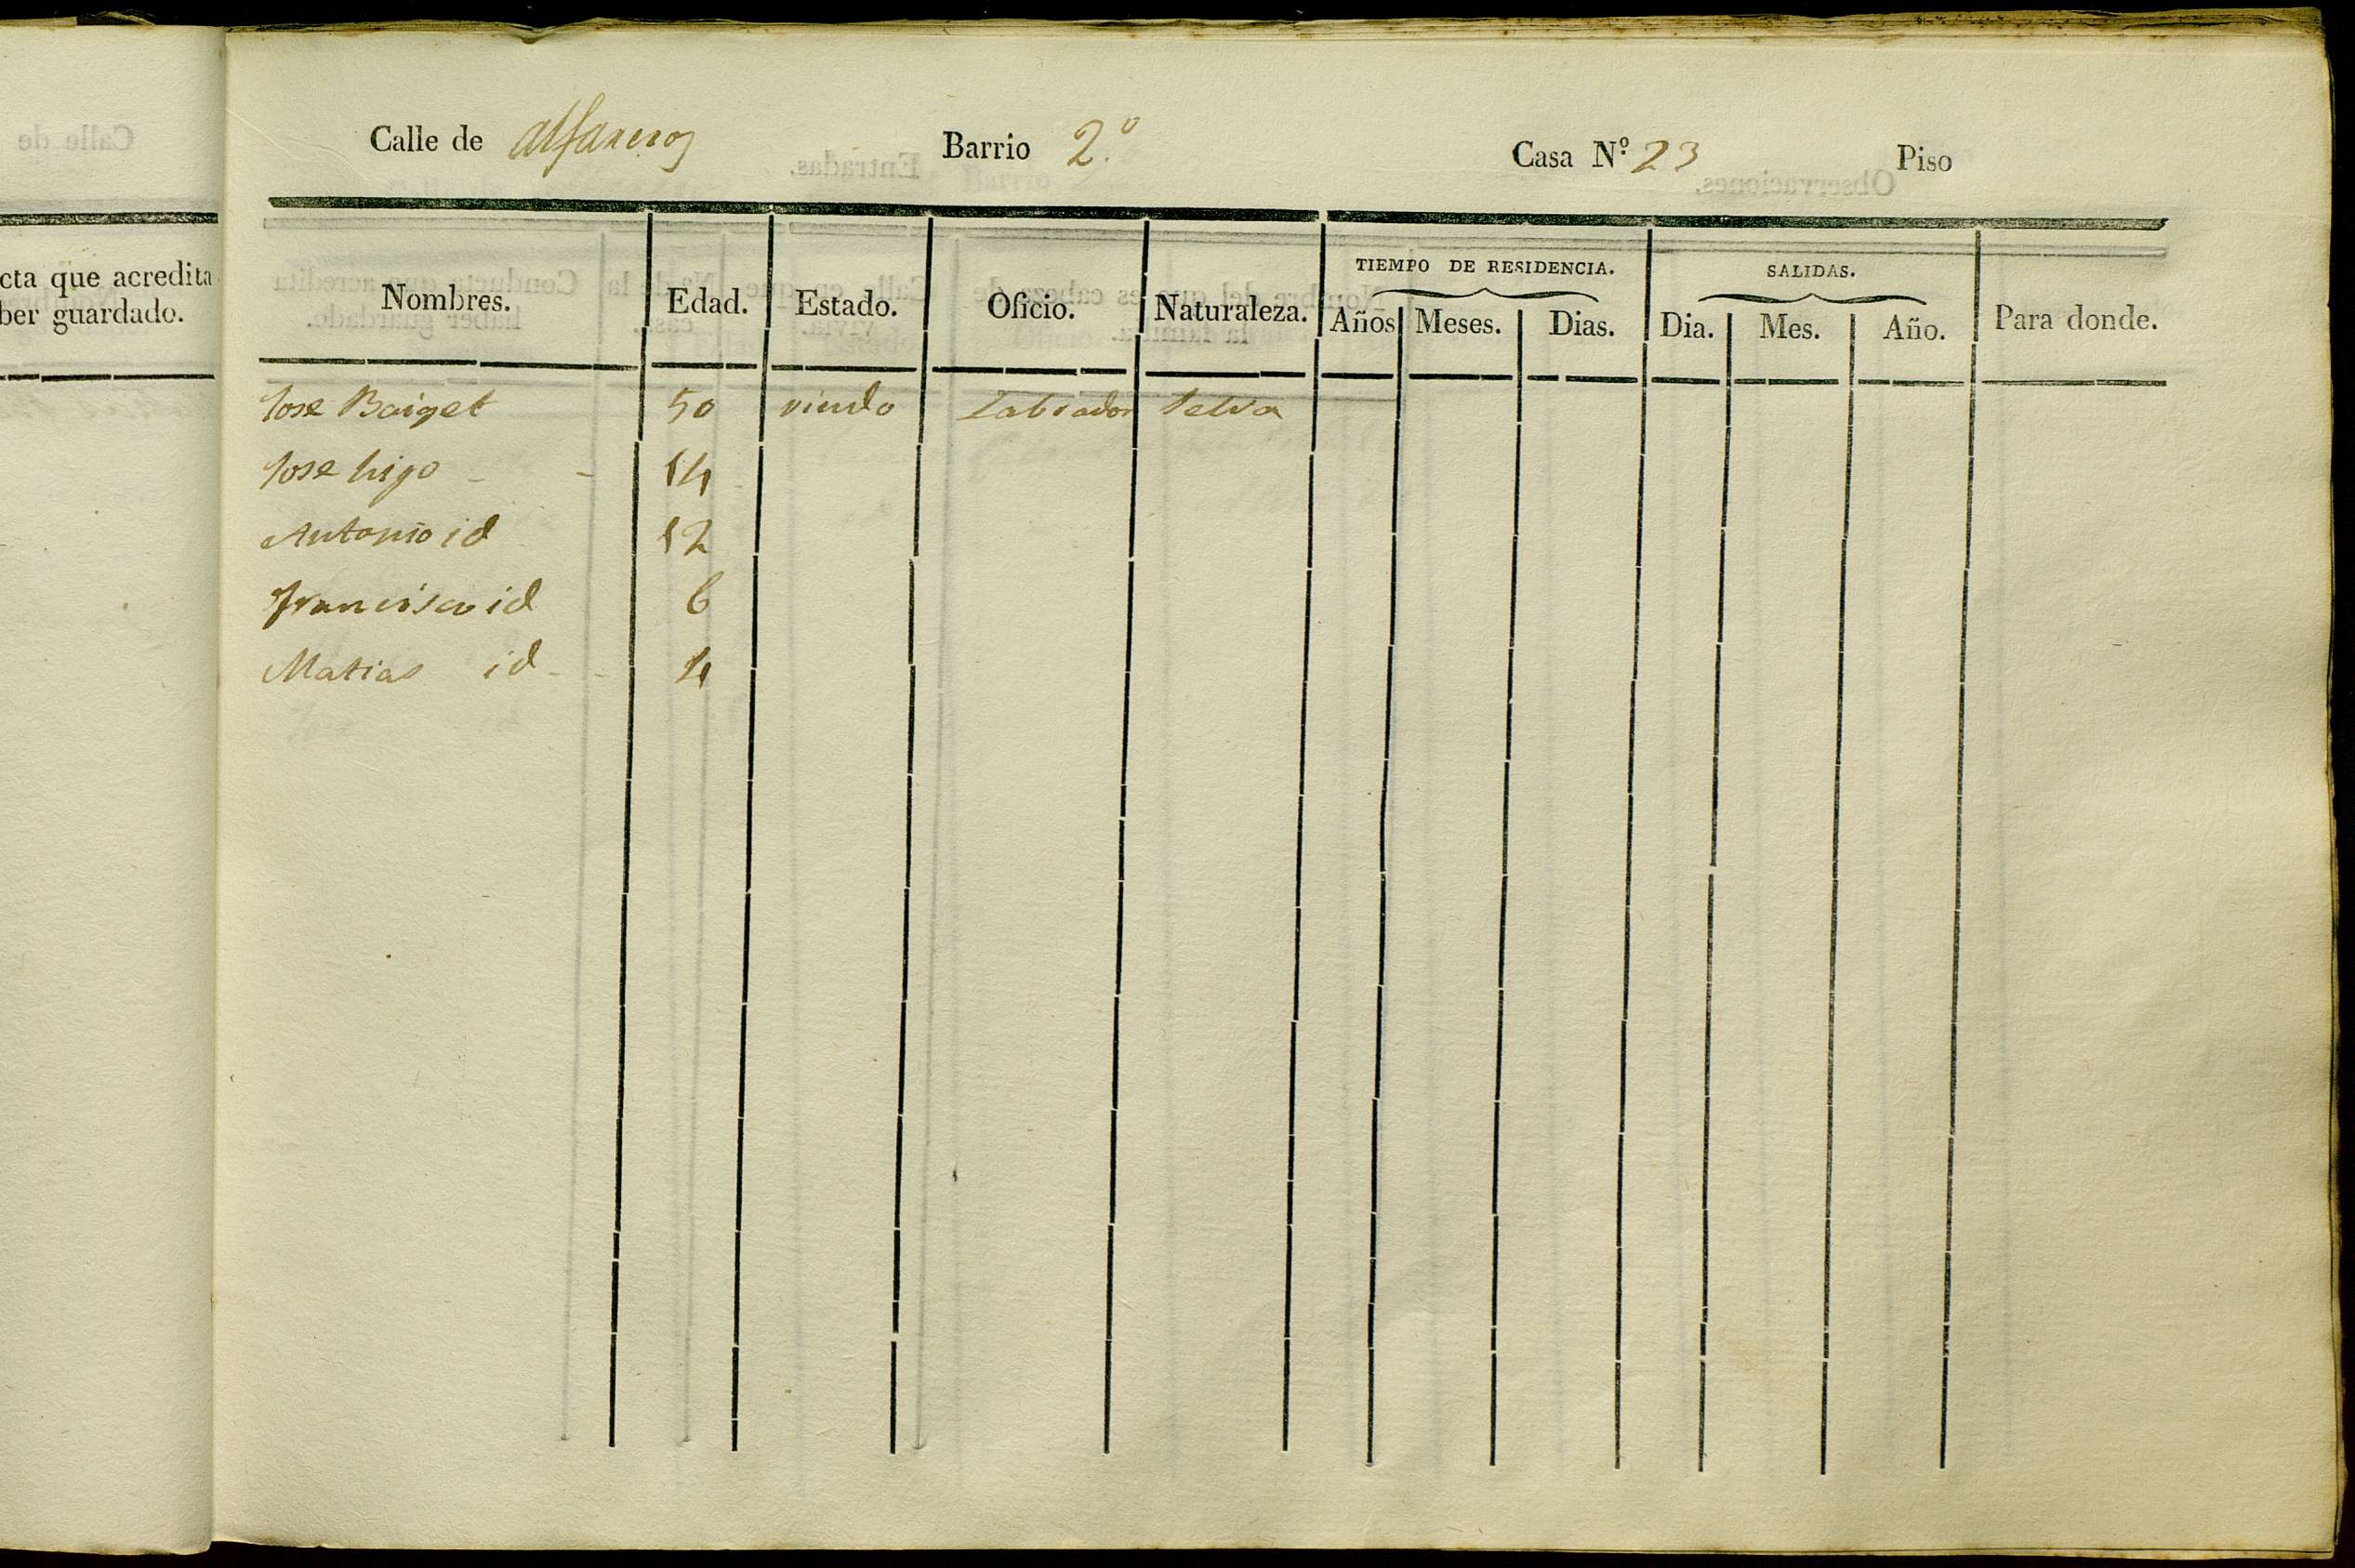 Calle de Alfareros Barrio 2.º Casa N.º 23 Piso
cta que acredita
ber guardado.
TIEMPO DE RESIDENCIA. SALIDAS.
Nombres. Edad. Estado. Oficio. Naturaleza. Años Meses. Dias. Dia. Mes. Año. Para donde.
Jose Baiget 50 viudo Labrador Selva
Jose hijo 14
Antonio id 12
Francisco id 6
Matias id 4